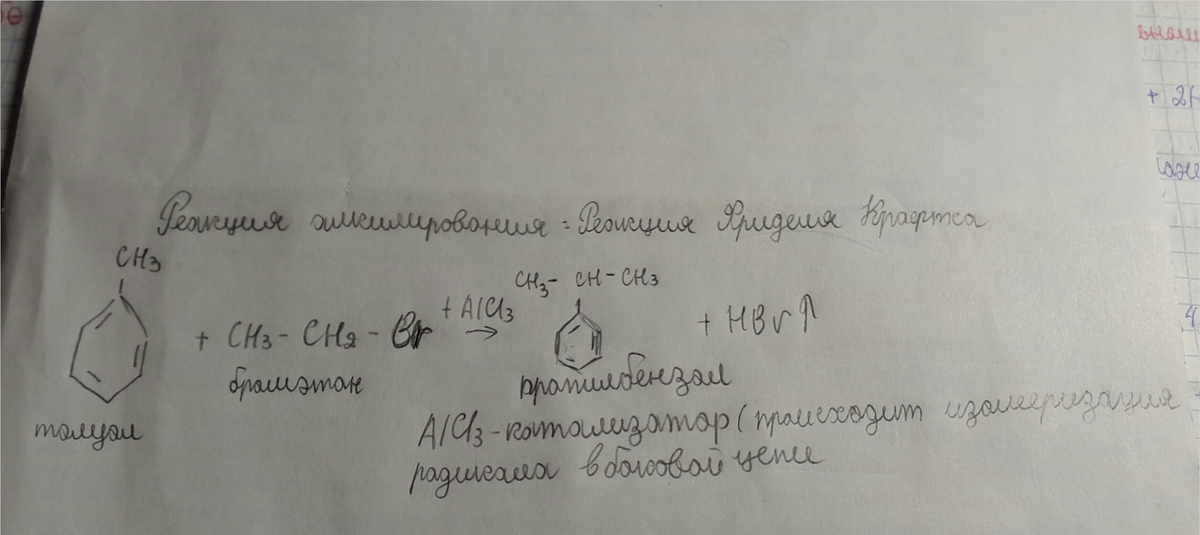 Реакция алкилирования = Реакция Фриделя Крафтса
CH3
CH3 - CH - CH3
+ CH3 - CH2 - Br + AlCl3 → + HBr↑
бромэтан
пропилбензол
толуол
AlCl3 - катализатор (происходит изомеризация
радикала в боковой цепи
+ 2H
4